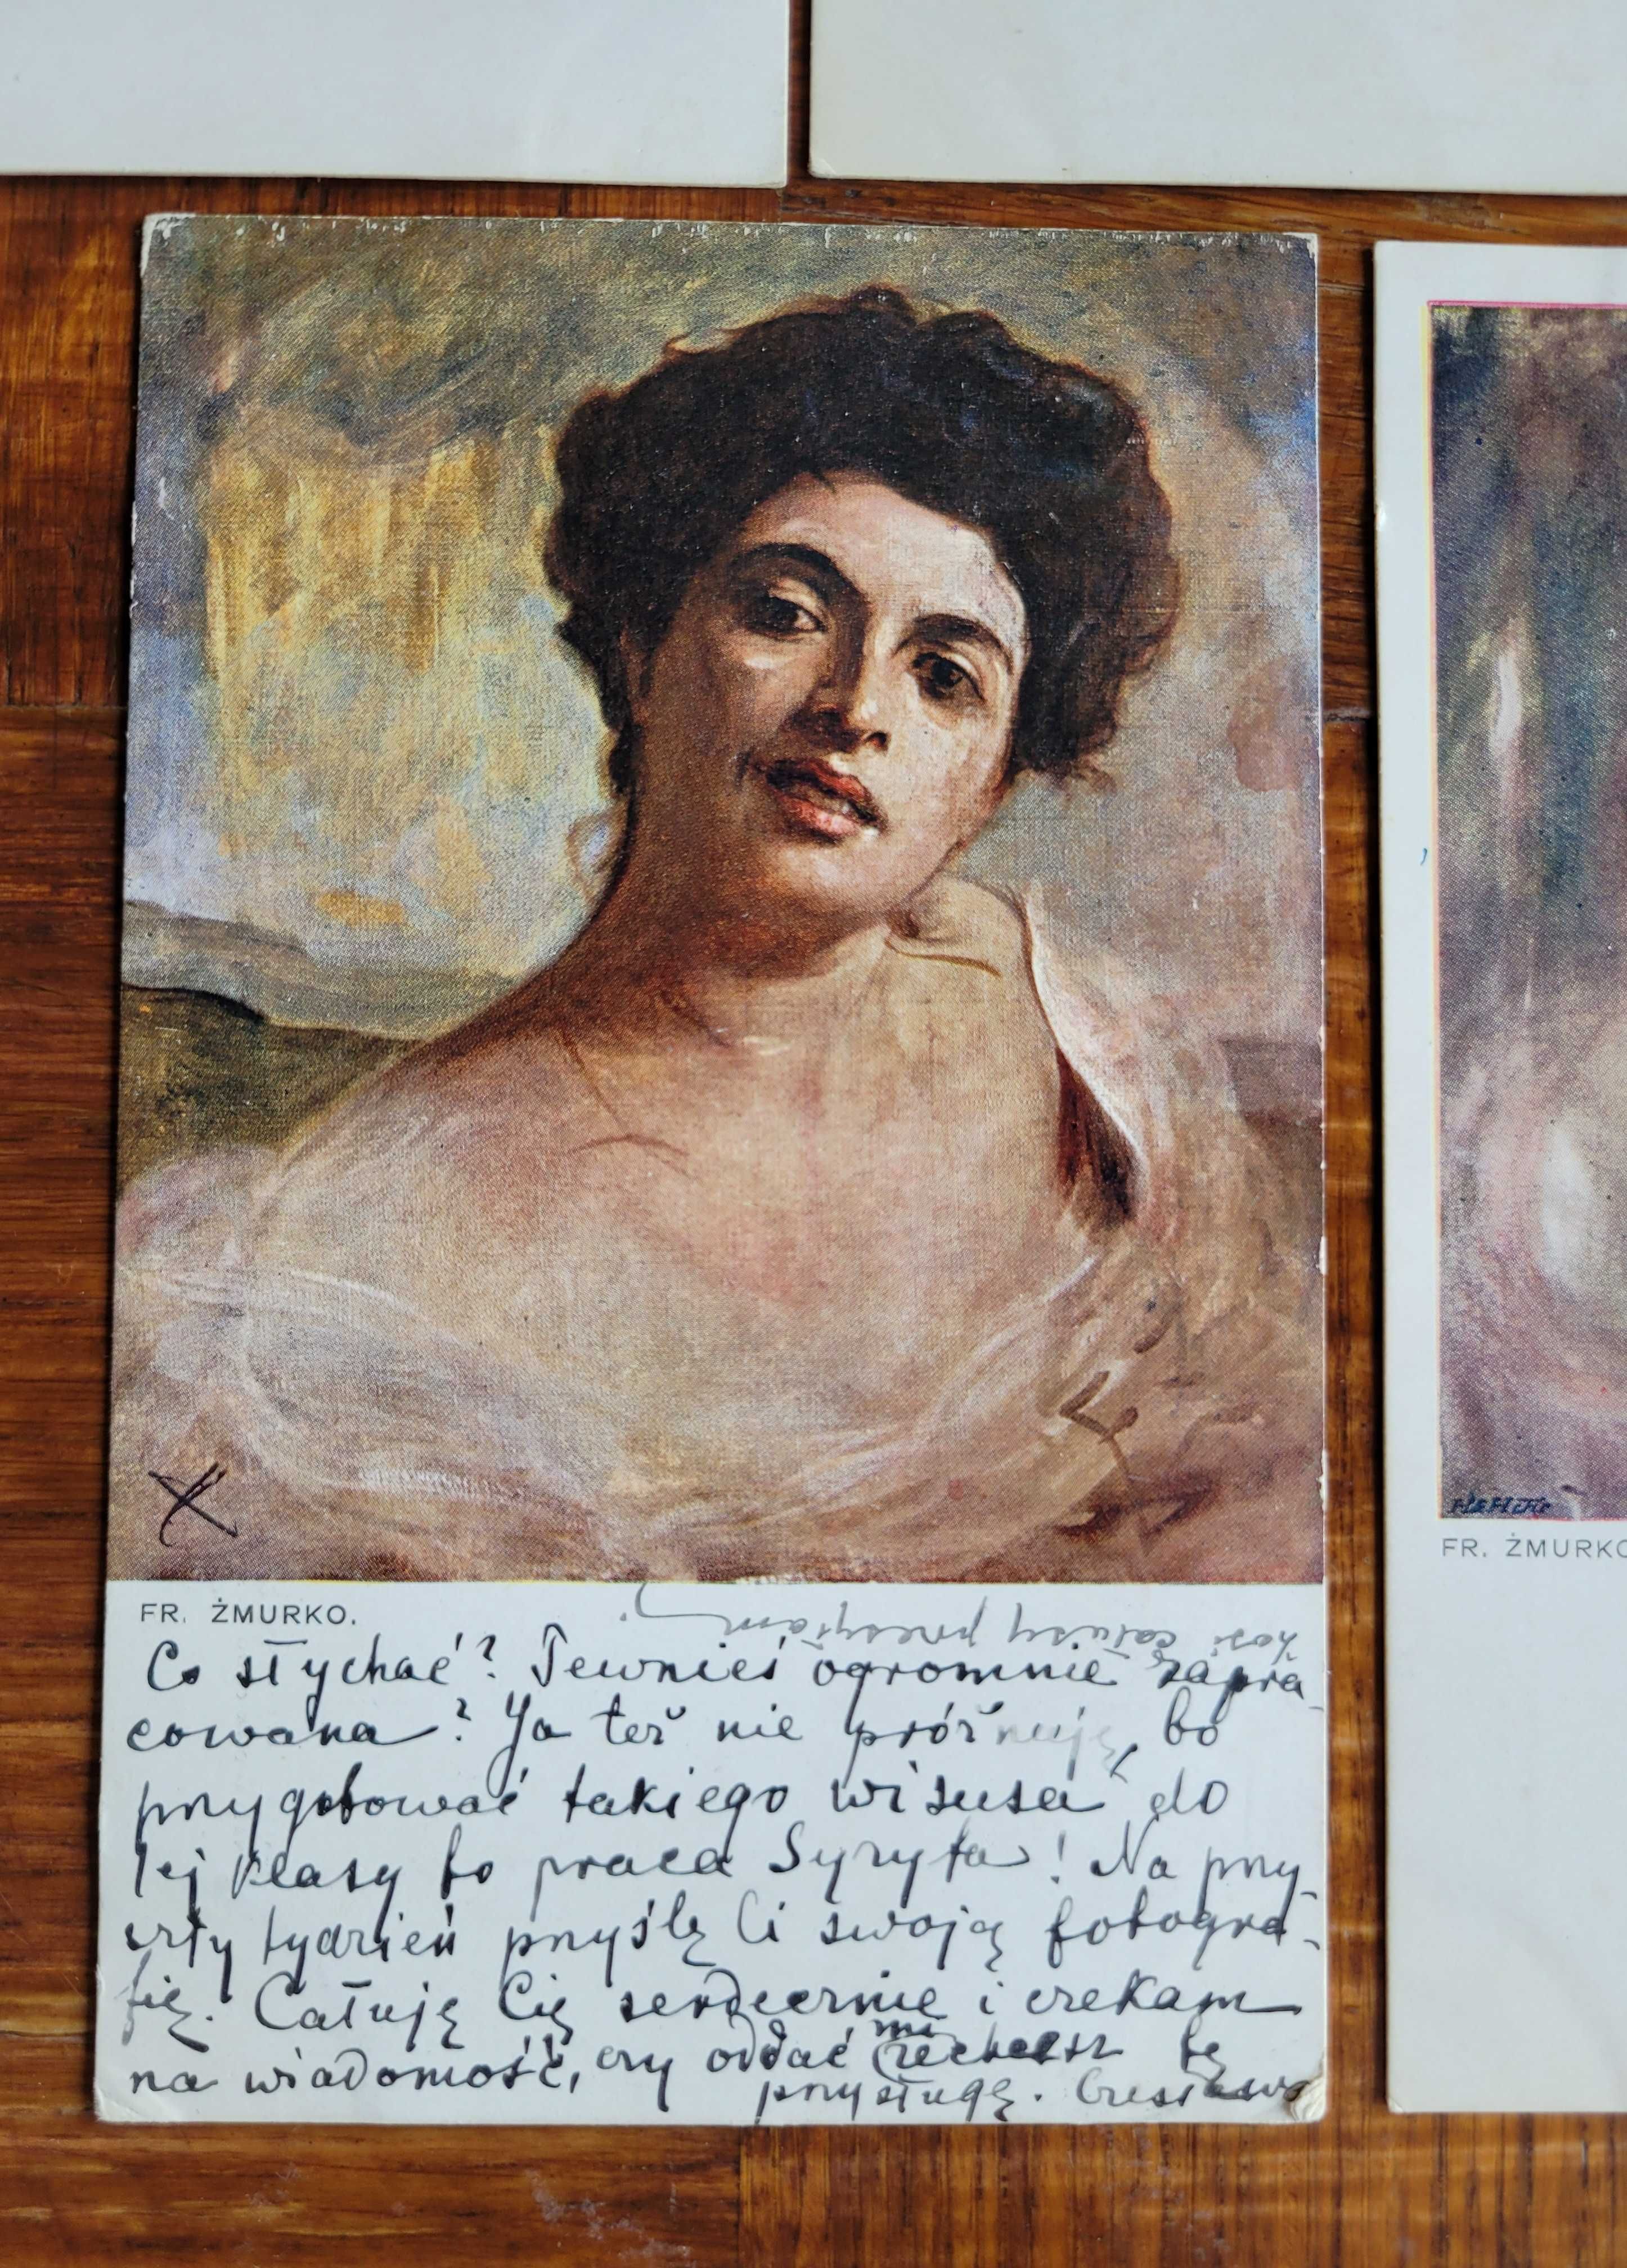 FR. ŻMURKO.
całusy przesyłam
Co słychać? Pewnieś ogromnie zapra-
cowana? Ja też nie próżnuję, bo
przygotować takiego wisusa do
Iej klasy to praca Syzyfa! Na przy-
szły tydzień przyślę Ci swoją fotogra-
fię. Całuję Cię serdecznie i czekam
na wiadomość, czy oddać mi zechcesz tę
przysługę. Czesława
FR. ŻMURKO